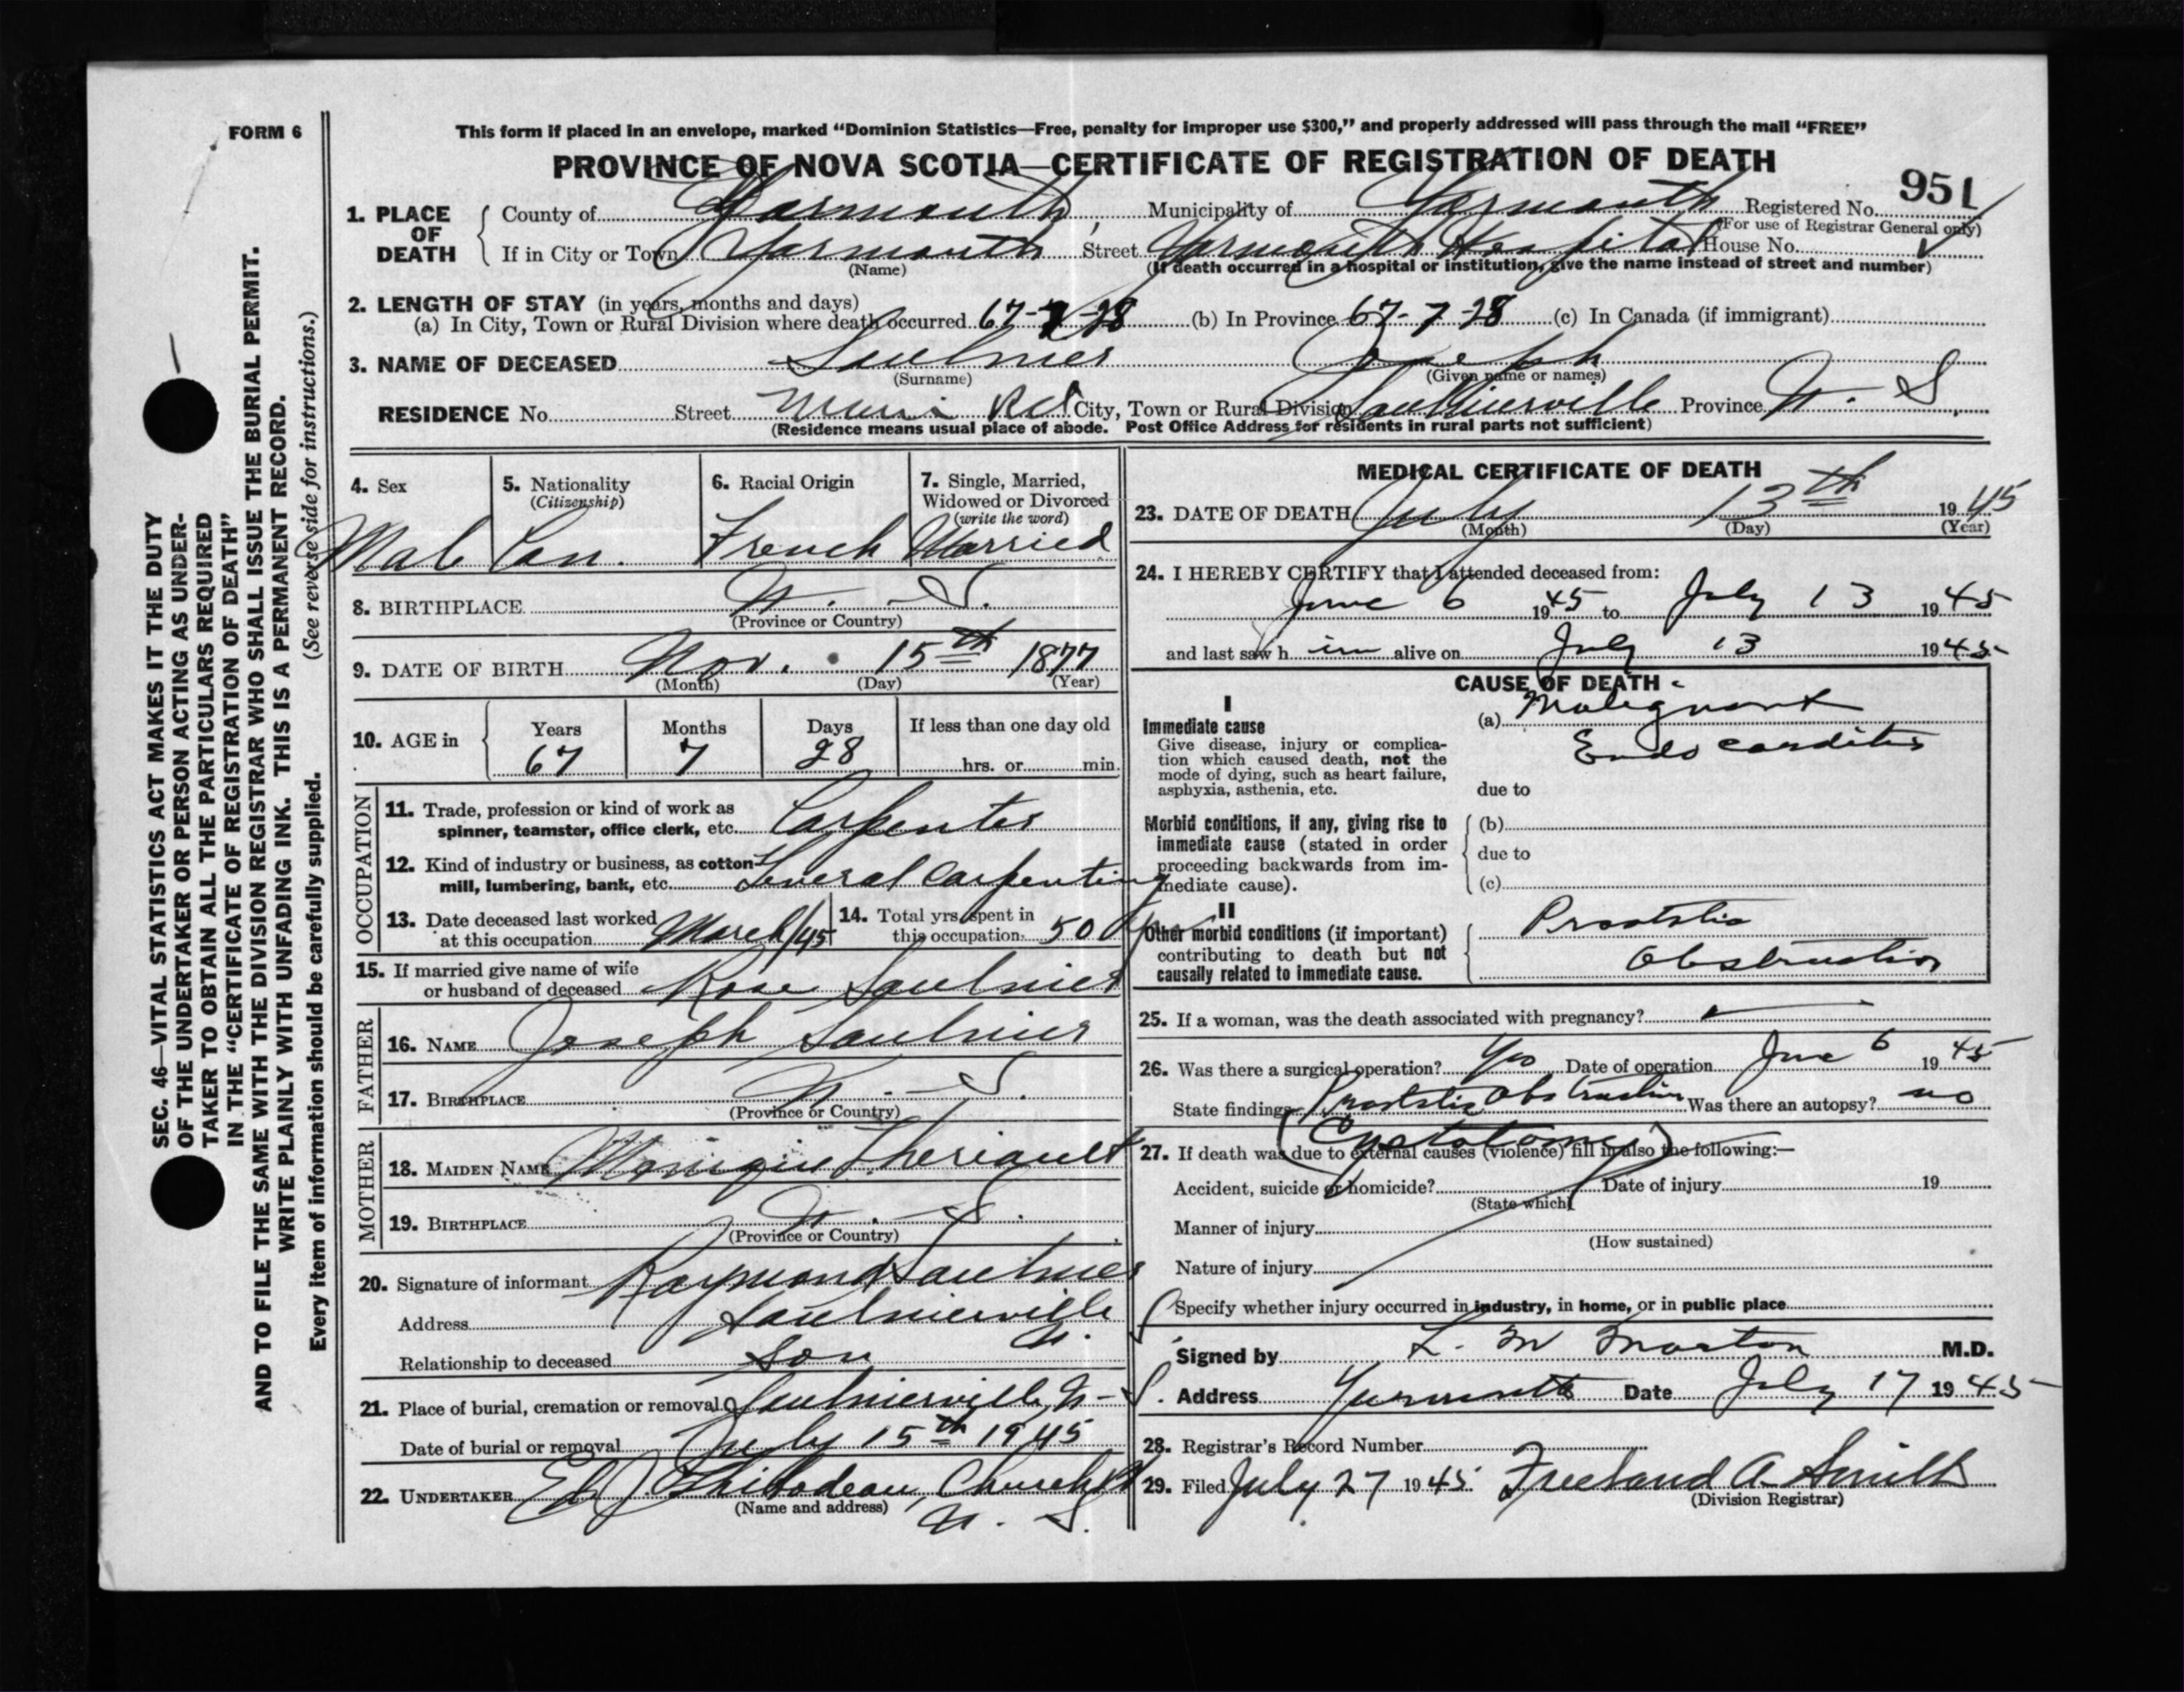 FORM 6
This form if placed in an envelope, marked “Dominion Statistics—Free, penalty for improper use $300,” and properly addressed will pass through the mail “FREE”
PROVINCE OF NOVA SCOTIA—CERTIFICATE OF REGISTRATION OF DEATH
951
1. PLACE OF DEATH
County of Yarmouth, Municipality of Yarmouth Registered No.
(For use of Registrar General only)
If in City or Town Yarmouth Street Yarmouth Hospital House No.
(Name) (If death occurred in a hospital or institution, give the name instead of street and number)
2. LENGTH OF STAY (in years, months and days)
(a) In City, Town or Rural Division where death occurred 67-7-28 (b) In Province 67-7-28 (c) In Canada (if immigrant)
3. NAME OF DECEASED Saulnier Joseph
(Surname) (Given name or names)
RESIDENCE No. Street Rd City, Town or Rural Division Saulnierville Province N. S.
(Residence means usual place of abode. Post Office Address for residents in rural parts not sufficient)
4. Sex
Male
5. Nationality
(Citizenship)
Can.
6. Racial Origin
French
7. Single, Married,
Widowed or Divorced
(write the word)
Married
8. BIRTHPLACE N. S.
(Province or Country)
9. DATE OF BIRTH Nov. 15th 1877
(Month) (Day) (Year)
10. AGE in
Years Months Days If less than one day old
67 7 28 hrs. or min.
OCCUPATION
11. Trade, profession or kind of work as
spinner, teamster, office clerk, etc. Carpenter
12. Kind of industry or business, as cotton-
mill, lumbering, bank, etc. General Carpenting
13. Date deceased last worked
at this occupation March/45
14. Total yrs. spent in
this occupation 50 yrs
15. If married give name of wife
or husband of deceased Rose Saulnier
FATHER
16. NAME Joseph Saulnier
17. BIRTHPLACE N. S.
(Province or Country)
MOTHER
18. MAIDEN NAME Monique Theriault
19. BIRTHPLACE N. S.
(Province or Country)
20. Signature of informant Raymond Saulnier
Address Saulnierville N. S.
Relationship to deceased Son
21. Place of burial, cremation or removal Saulnierville, N-S.
Date of burial or removal July 15th 1945
22. UNDERTAKER Thibodeau, Church Pt
(Name and address) N. S.
MEDICAL CERTIFICATE OF DEATH
23. DATE OF DEATH July 13th 1945
(Month) (Day) (Year)
24. I HEREBY CERTIFY that I attended deceased from:
June 6 1945 to July 13 1945
and last saw h im alive on July 13 1945
CAUSE OF DEATH
I
Immediate cause
Give disease, injury or complica-
tion which caused death, not the
mode of dying, such as heart failure,
asphyxia, asthenia, etc.
(a) Malignant
Endocarditis
due to
Morbid conditions, if any, giving rise to
immediate cause (stated in order
proceeding backwards from im-
mediate cause).
(b)
due to
(c)
II
Other morbid conditions (if important)
contributing to death but not
causally related to immediate cause.
Prostatic
Obstruction
25. If a woman, was the death associated with pregnancy?
26. Was there a surgical operation? Yes Date of operation June 6 1945
State findings Prostatic Obstruction Was there an autopsy? no
(Cystotomy)
27. If death was due to external causes (violence) fill in also the following:—
Accident, suicide or homicide? Date of injury 19
(State which)
Manner of injury
(How sustained)
Nature of injury
Specify whether injury occurred in industry, in home, or in public place
Signed by L. M Morton M.D.
Address Yarmouth Date July 17 1945
28. Registrar's Record Number
29. Filed July 27 1945 Freeland A. Smith
(Division Registrar)
SEC. 46—VITAL STATISTICS ACT MAKES IT THE DUTY
OF THE UNDERTAKER OR PERSON ACTING AS UNDER-
TAKER TO OBTAIN ALL THE PARTICULARS REQUIRED
IN THE “CERTIFICATE OF REGISTRATION OF DEATH”
AND TO FILE THE SAME WITH THE DIVISION REGISTRAR WHO SHALL ISSUE THE BURIAL PERMIT.
WRITE PLAINLY WITH UNFADING INK. THIS IS A PERMANENT RECORD.
Every item of information should be carefully supplied. (See reverse side for instructions.)